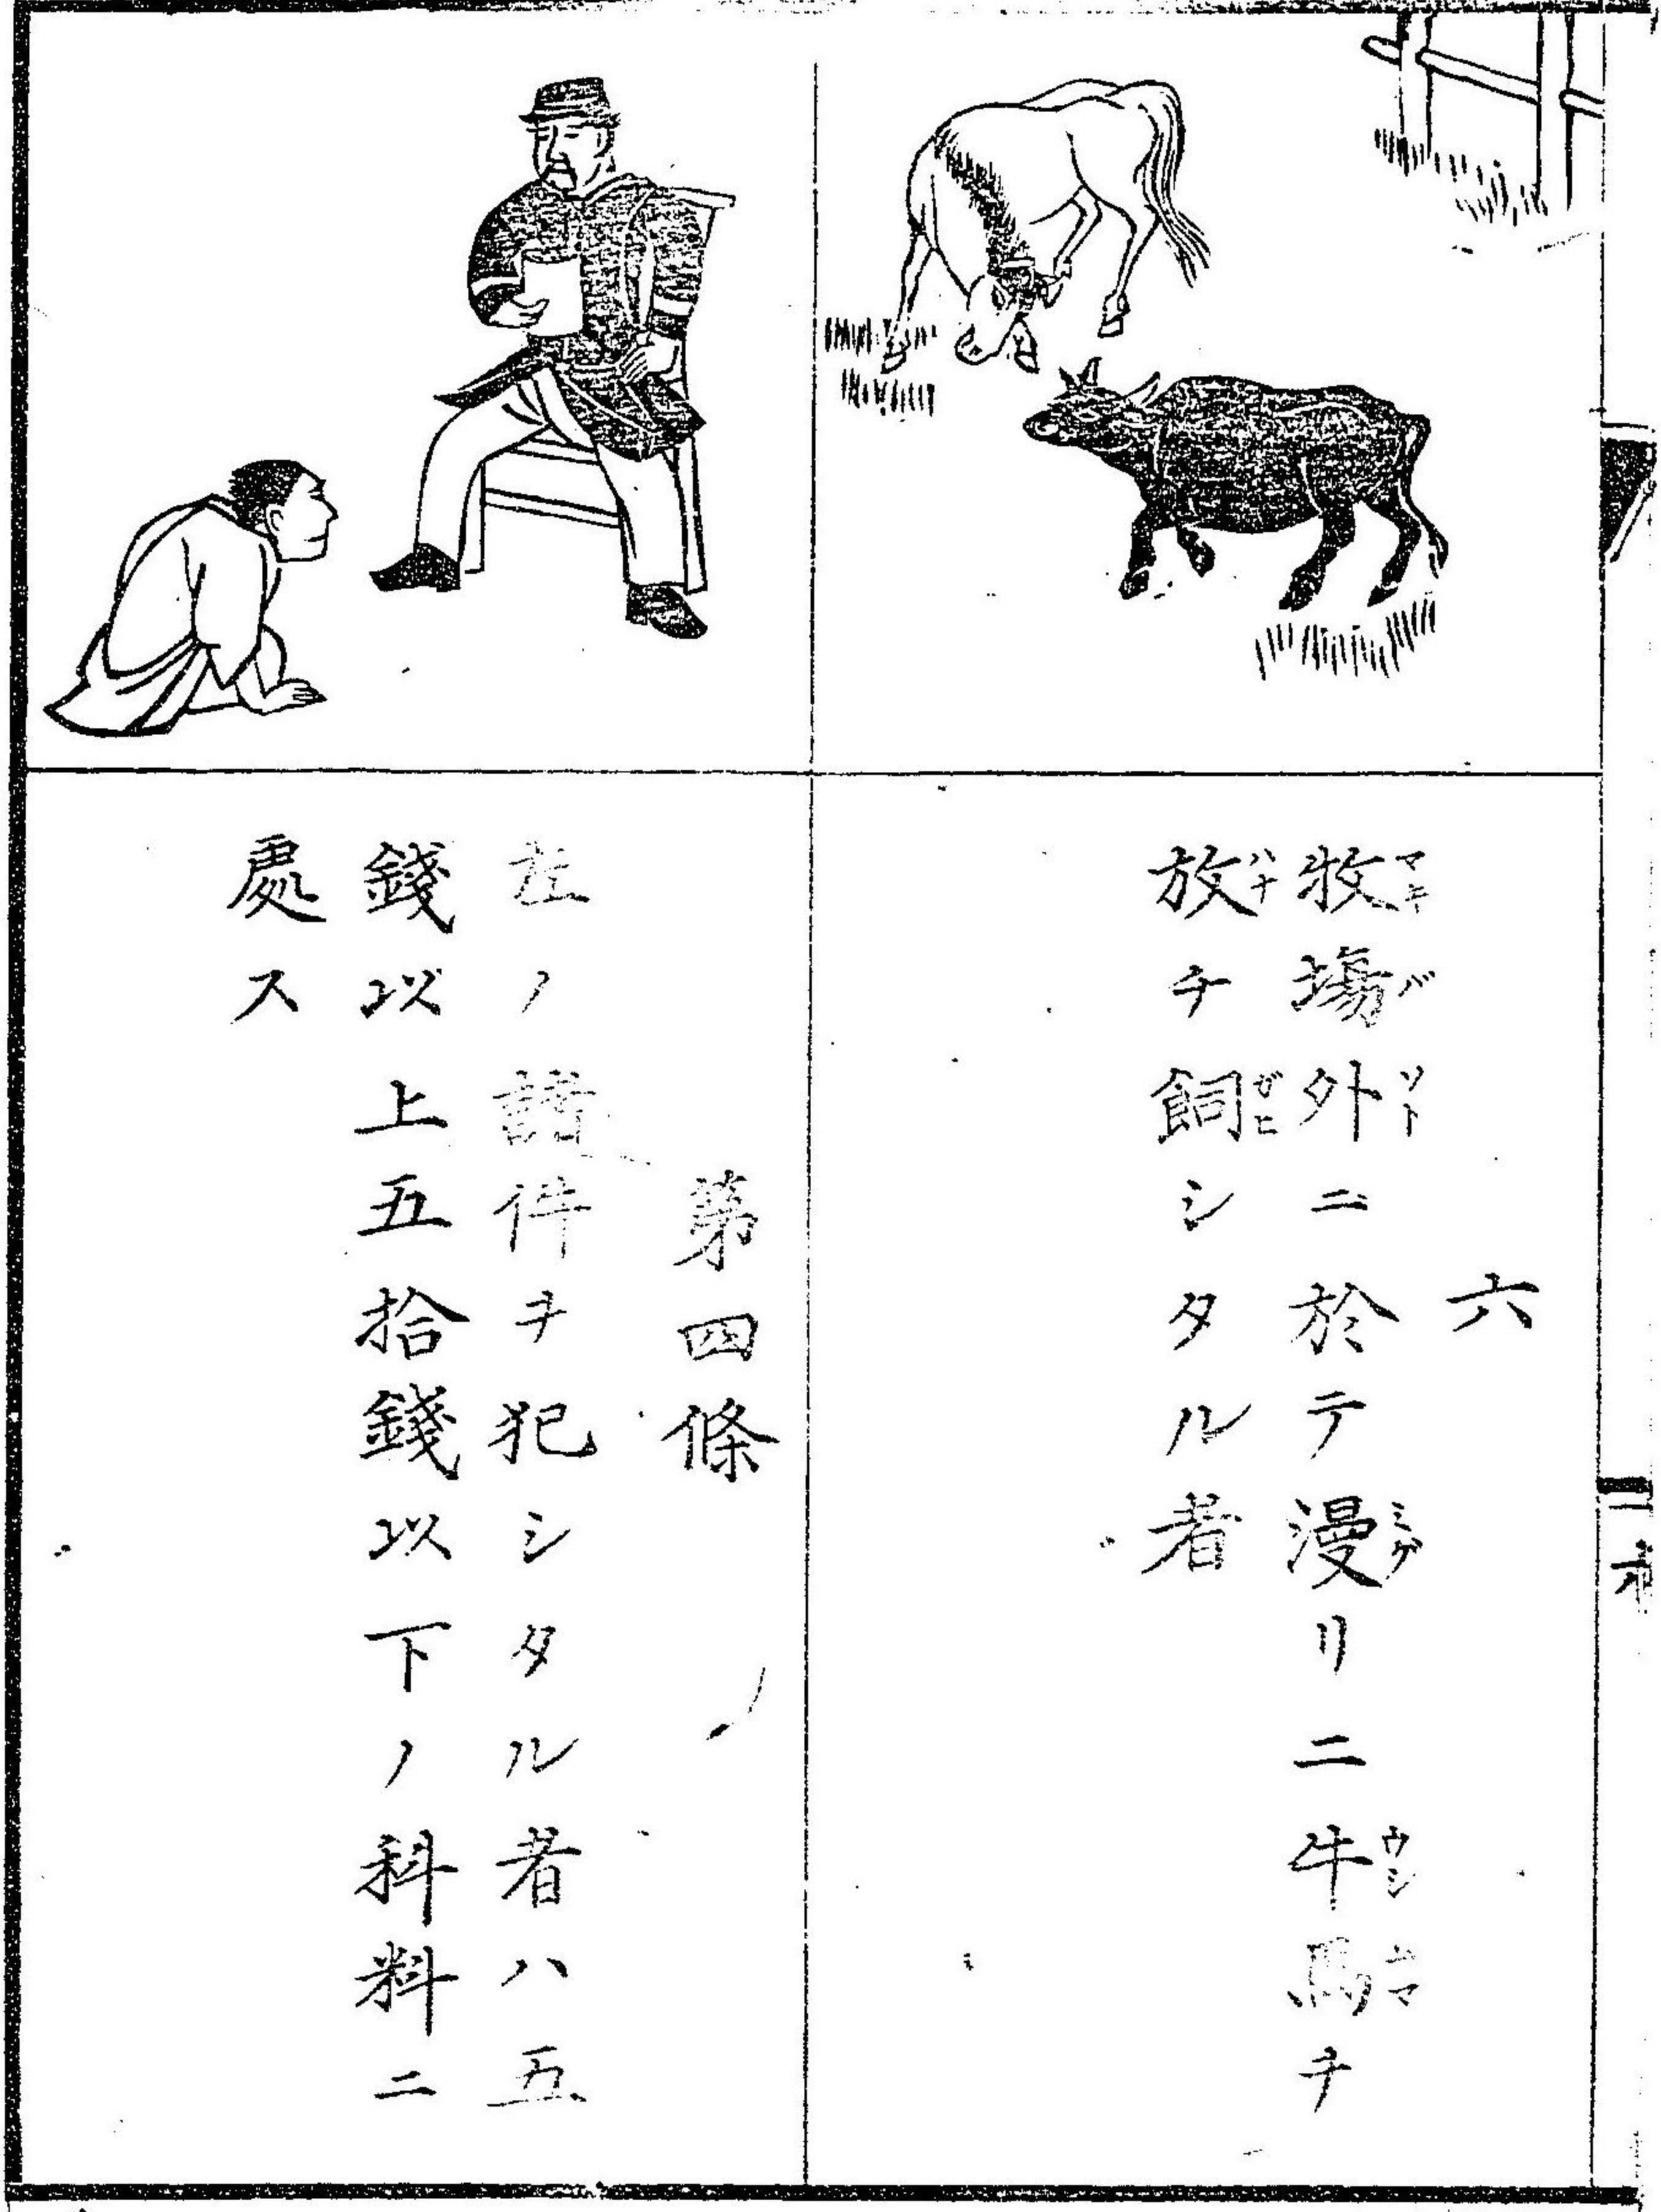 六
牧場外ニ於テ漫リニ牛馬ヲ
放チ飼シタル者
第四條
左ノ諸件ヲ犯シタル者ハ五
錢以上五拾錢以下ノ科料ニ
處ス